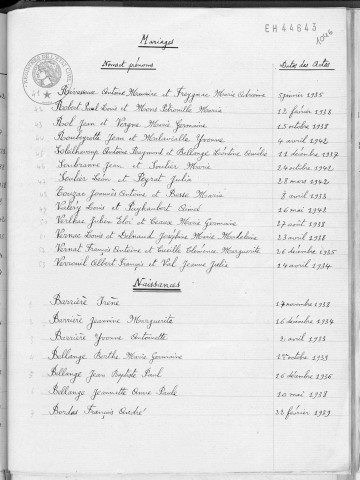 EH44643
1046
Mariages
Noms et prénoms Dates des Actes
Antoine Maurice et Freygnac Marie 5 janvier 1935
Robert Paul Louis et Mons Pétronille Maria 12 février 1938
Rol Jean et Vergne Marie Germaine 15 octobre 1938
Jean et Yvonne 4 avril 1942
Antoine Raymond et Bellonge 11 décembre 1937
Soubranne Jean et Soulier Maria 24 octobre 1942
Soulier Léon et Peyrat Julia 28 mars 1942
Antoine et Besse Maria 8 avril 1933
Valéry Louis et 16 mai 1942
Jules Éloi et Ceaux Marie Germaine 27 août 1938
Vernac Louis et Delmaud Joséphine Marie Madeleine 23 avril 1938
Vernat François Antoine et Clémence Marguerite 26 décembre 1935
Verneuil Albert François et Val Jeanne Julie 14 avril 1934
Naissances
Barrière Irène 17 novembre 1938
Barrière Jeannine Marguerite 16 décembre 1934
Barrière Yvonne Antoinette 2 avril 1933
Bellonge Berthe Marie Germaine octobre 1939
Bellonge Jean Baptiste Paul 26 décembre 1936
Bellonge Jeannette Anne Paule 20 mai 1938
Bordas François André 22 février 1939